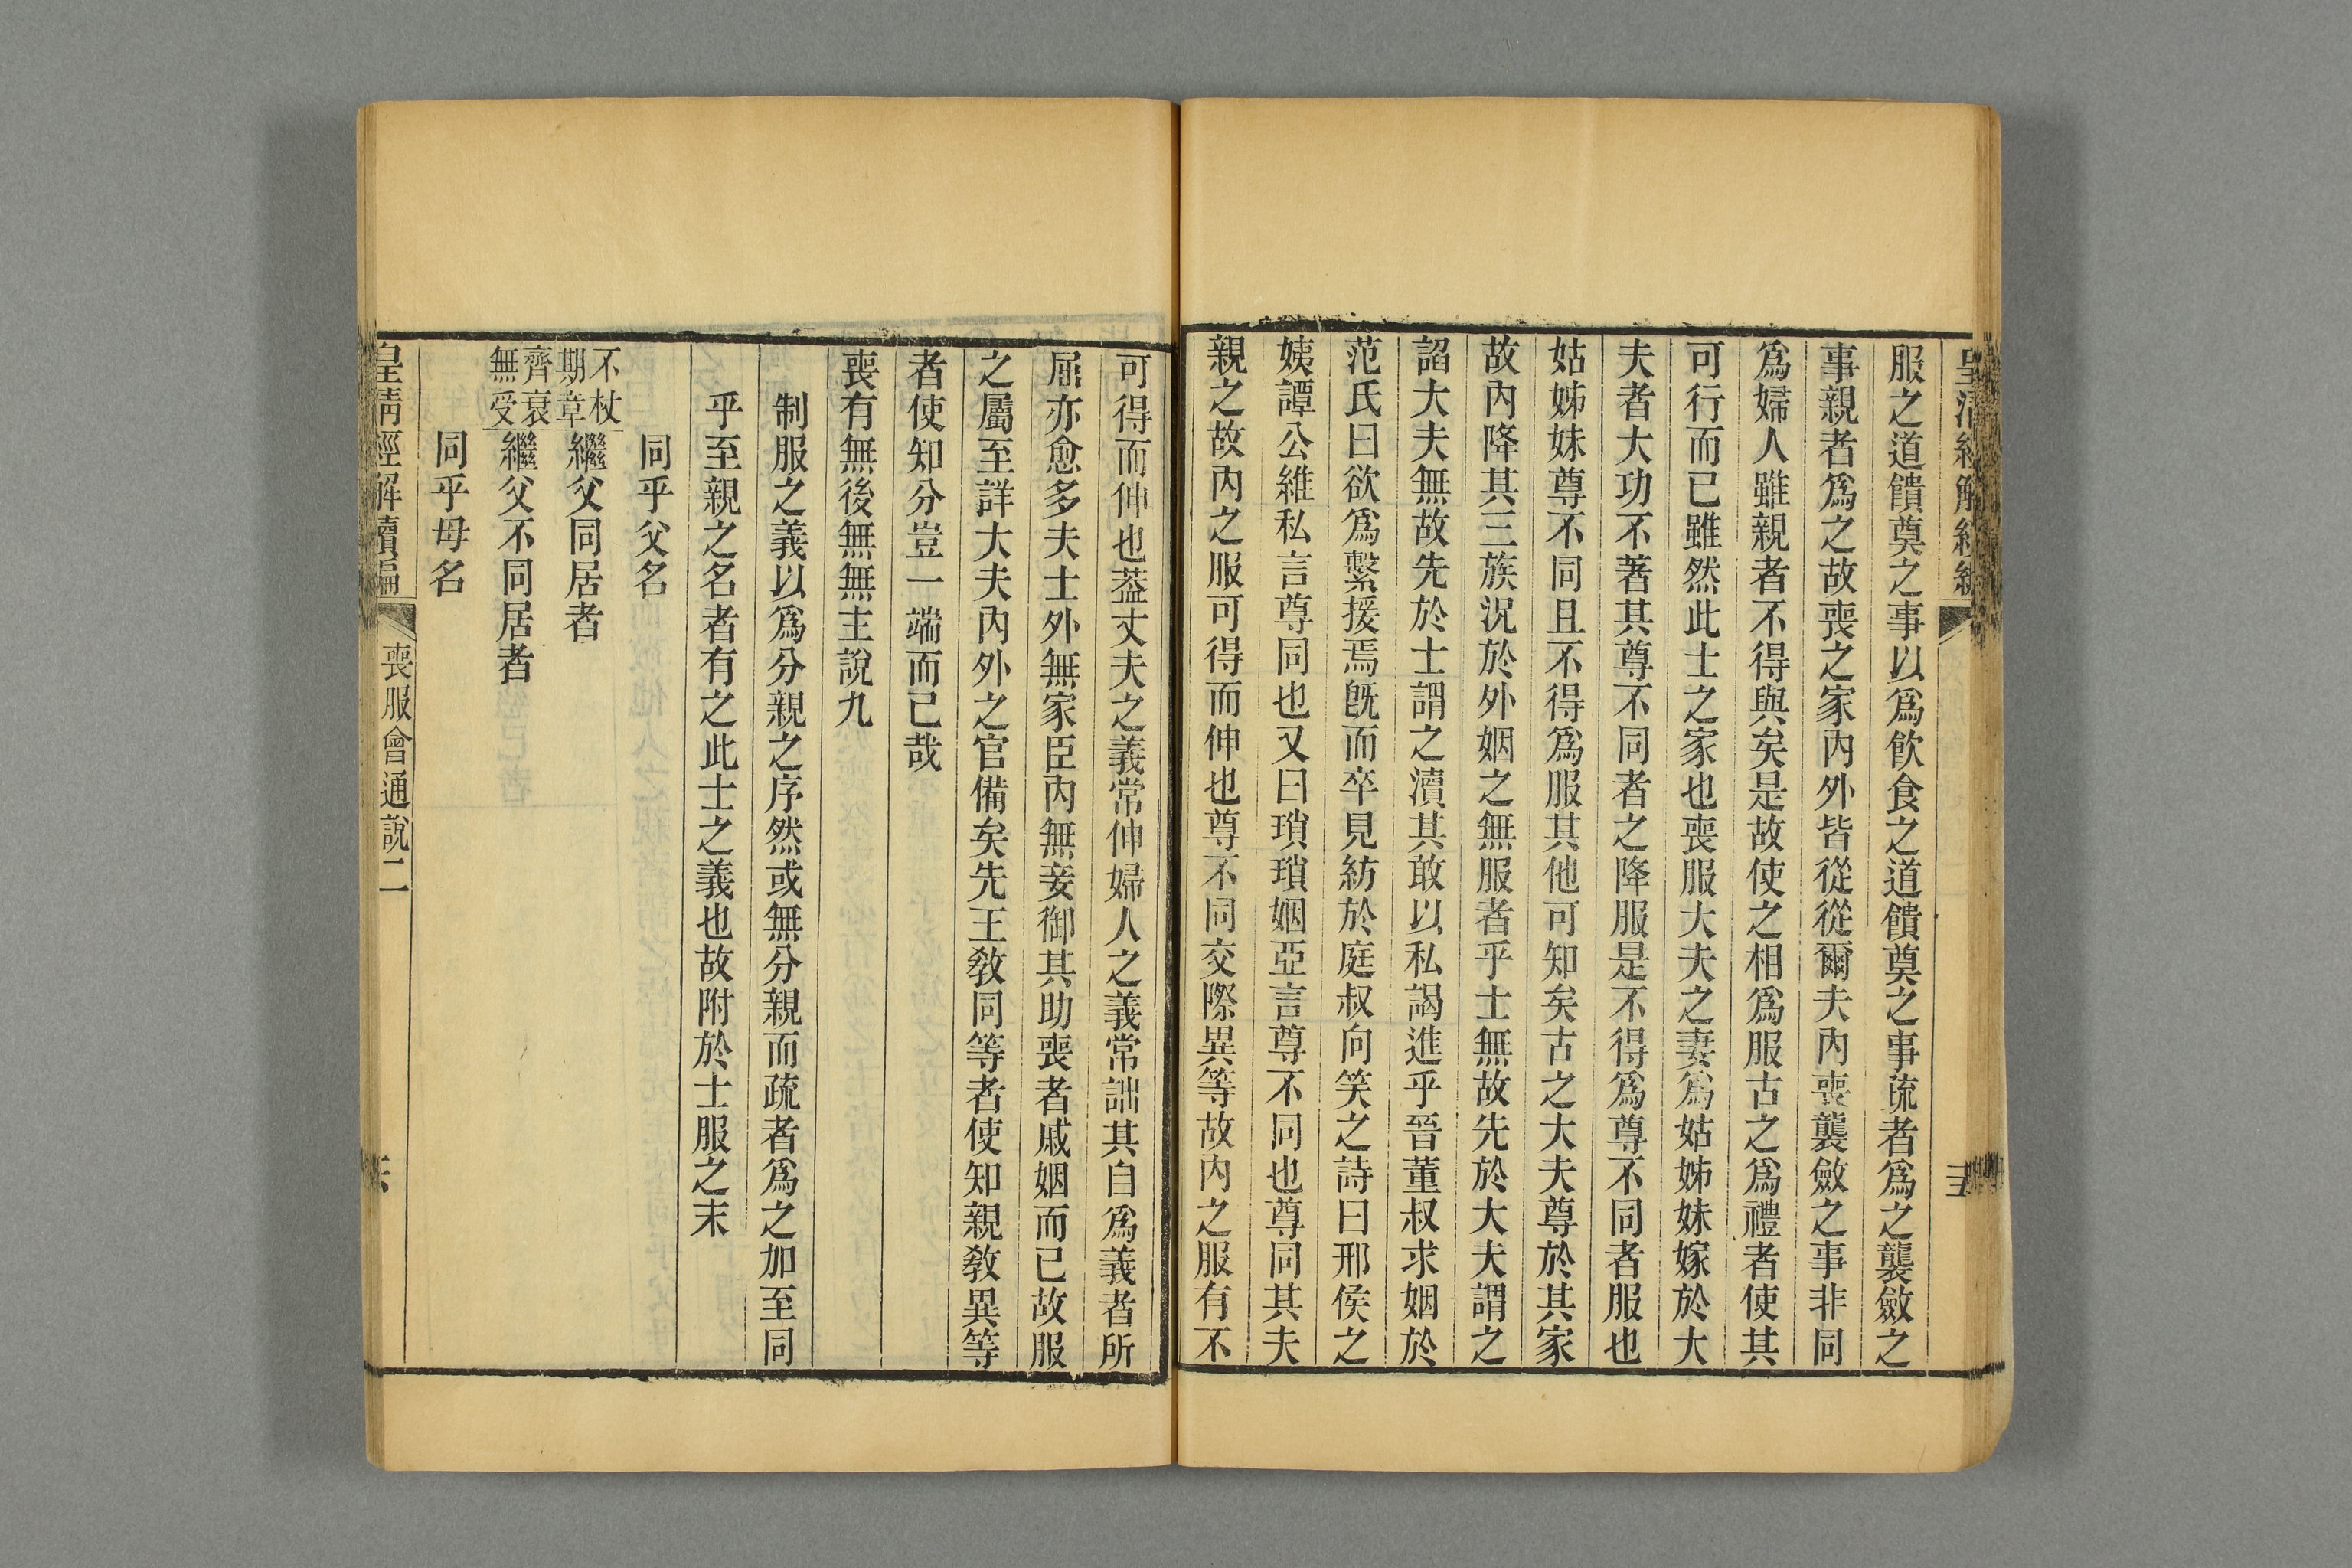 皇清經解續編
服之道饋奠之事以爲飮食之道饋奠之事疏者爲之襲斂之
事親者爲之故喪之家內外皆從從爾夫內喪襲斂之事非同
爲婦人雖親者不得與矣是故使之相爲服古之爲禮者使其
可行而已雖然此士之家也喪服大夫之妻爲姑姊妹嫁於大
夫者大功不著其尊不同者之降服是不得爲尊不同者服也
姑姊妹尊不同且不得爲服其他可知矣古之大夫尊於其家
故內降其三族況於外姻之無服者乎士無故先於大夫謂之
諂大夫無故先於士謂之瀆其敢以私謁進乎晉董叔求姻於
范氏曰欲爲繫援焉旣而卒見紡於庭叔向笑之詩曰邢侯之
姨譚公維私言尊同也又曰瑣瑣姻亞言尊不同也尊同其夫
親之故內之服可得而伸也尊不同交際異等故內之服有不
可得而伸也葢丈夫之義常伸婦人之義常詘其自爲義者所
屈亦愈多夫士外無家臣內無妾御其助喪者戚姻而已故服
之屬至詳大夫內外之官備矣先王敎同等者使知親敎異等
者使知分豈一端而已哉
喪有無後無無主說九
制服之義以爲分親之序然或無分親而疏者爲之加至同
乎至親之名者有之此士之義也故附於士服之末
同乎父名
不杖期章 繼父同居者
齊衰無受 繼父不同居者
同乎母名
皇清經解續編 喪服會通說二